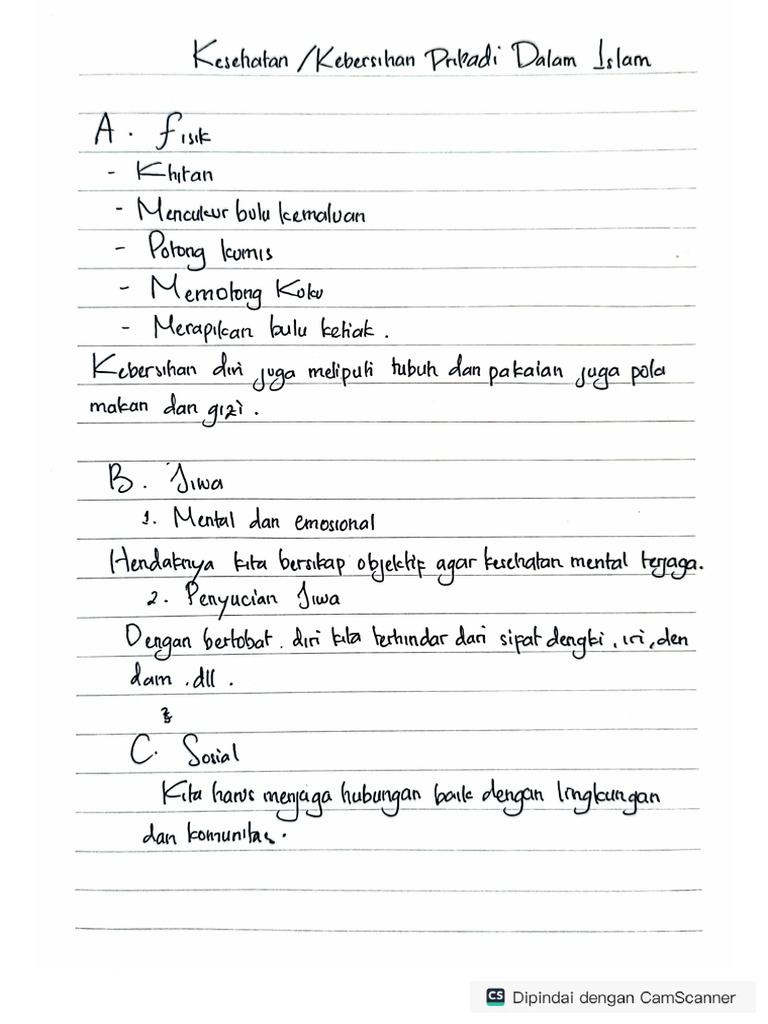 Kesehatan /Kebersihan Pribadi Dalam Islam
A. fisik
- Khitan
- Mencukur bulu kemaluan
- Potong kumis
- Memotong Kuku
- Merapikan bulu ketiak.
Kebersihan diri juga meliputi tubuh dan pakaian juga pola
makan dan gizi.
B. Jiwa
1. Mental dan emosional
Hendaknya kita bersikap objektif agar kesehatan mental terjaga.
2. Penyucian Jiwa
Dengan bertobat. diri kita terhindar dari sipat dengki, iri, den
dam, dll.
C. Sosial
Kita harus menjaga hubungan baik dengan lingkungan
dan komunitas.
CS Dipindai dengan CamScanner